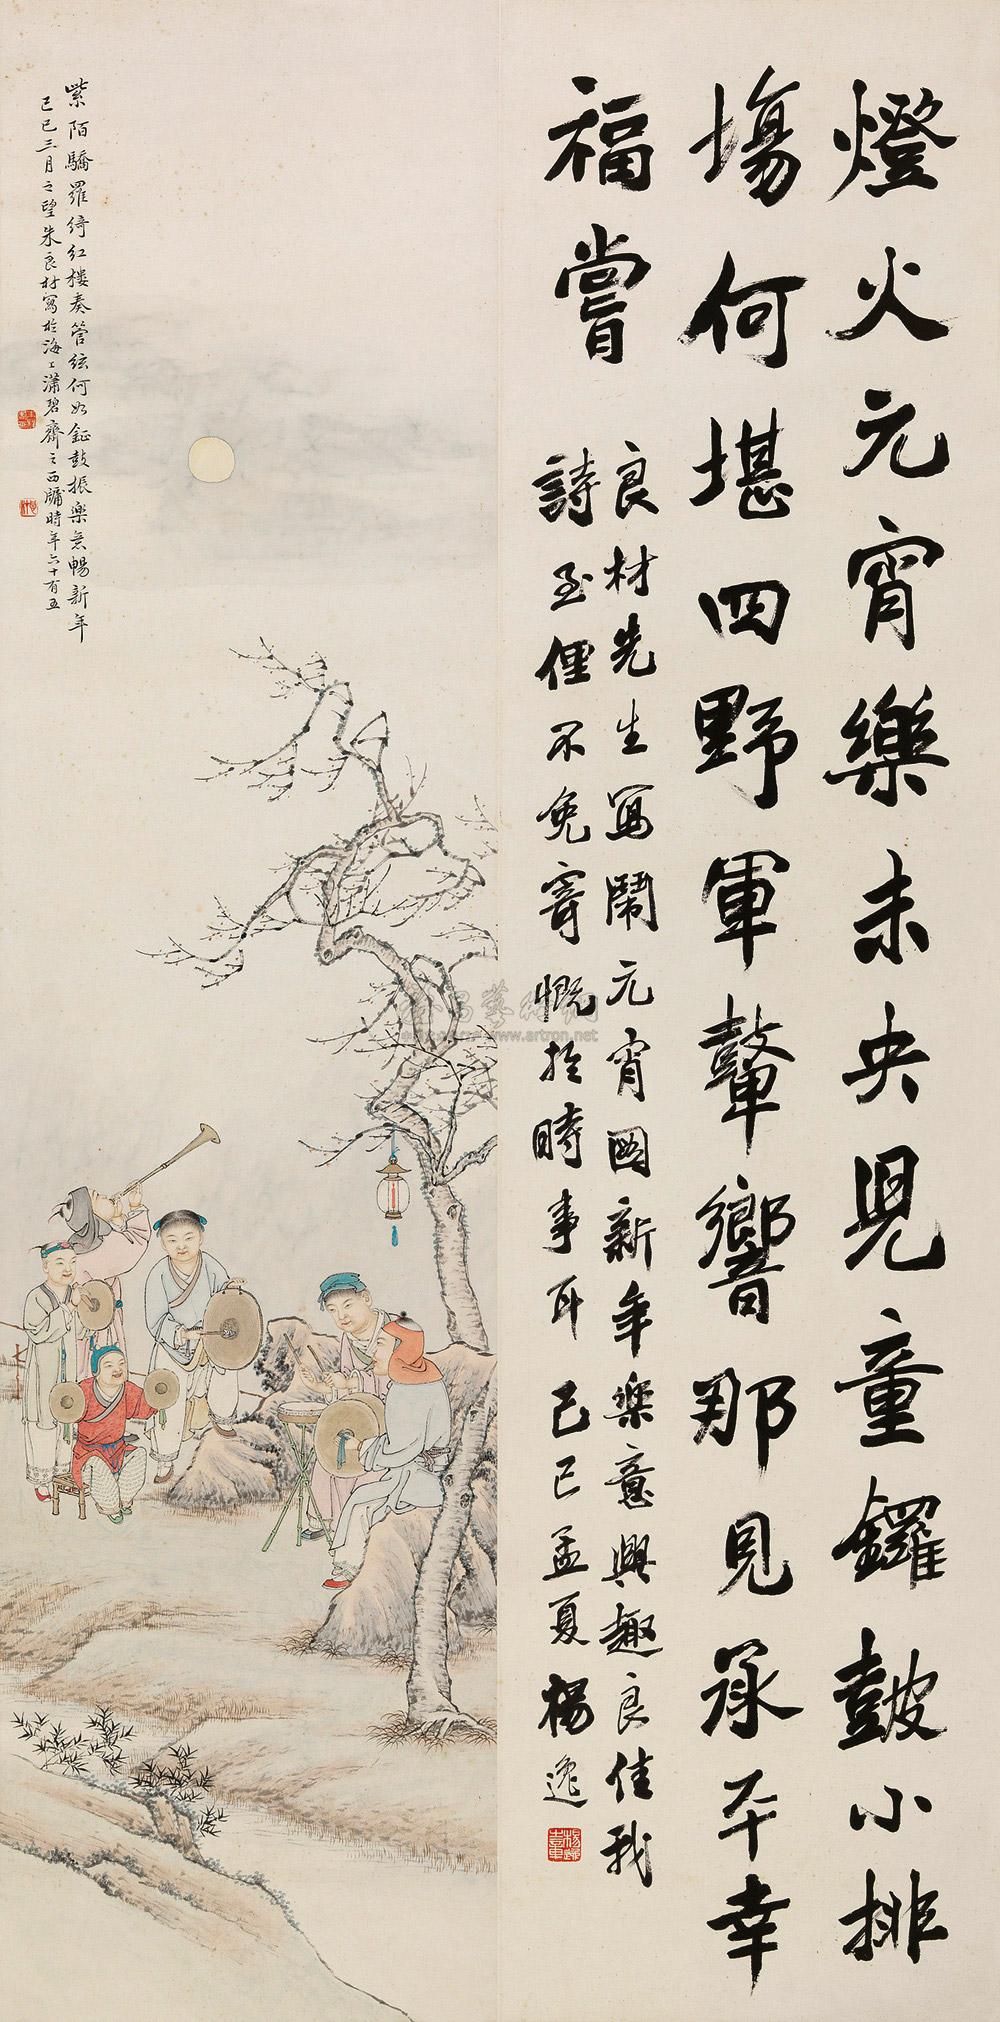 燈火元宵樂未央兒童鑼鼓小排
塲何堪四野軍鼙響那見承平幸
福嘗
良材先生寫鬧元宵圖新年樂意興趣良佳我
詩至俚不免寄慨於時事耳己巳孟夏楊逸
紫陌驕羅綺紅樓奏管絃何如鉦鼓振樂意暢新年
己巳三月之望朱良材寫於海上瀟碧齋之西牖時年六十有五
www.artron.net